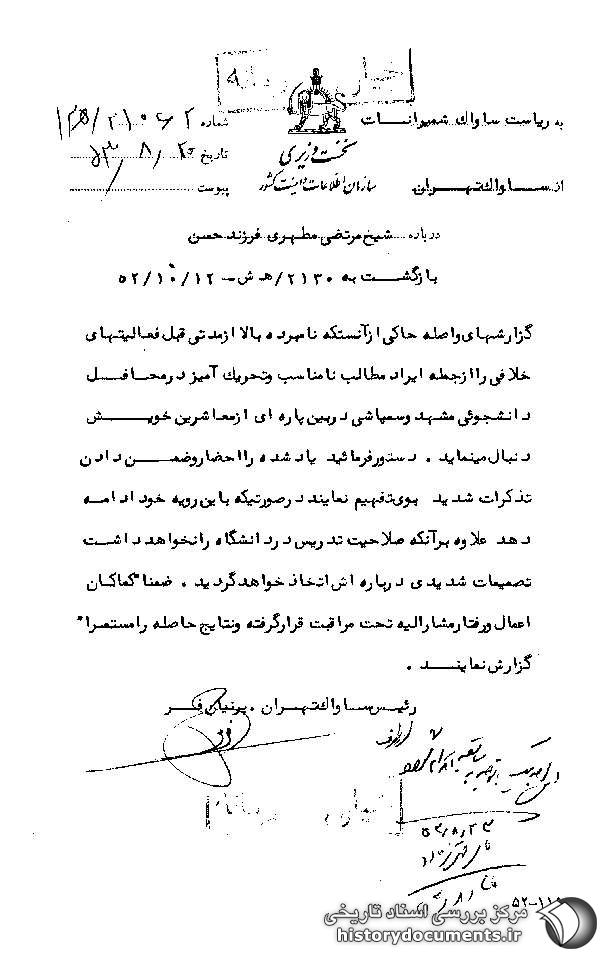 خیلی محرمانه
به ریاست ساواك شمیرانات
شماره ۲۱۰۶۲/ ۱۲ﻫ
نخست وزیری
تاریخ ۵۳/۸/۲۰
از ساواك تهران
سازمان اطلاعات و امنیت کشور
پیوست
درباره شیخ مرتضی مطهری فرزند حسن
بازگشت به ۲۱۳۰/ﻫ ش - ۵۲/۱۰/۱۲
گزارشهای واصله حاکی از آنستکه نامبرده بالا از مدتی قبل فعالیتهای
خلافی را از جمله ایراد مطالب نامناسب و تحریك آمیز در محافل
دانشجوئی مشهد وسمپاشی در بین پاره ای از معاشرین خویش
دنبال مینماید . دستور فرمائید یاد شده را احضار و ضمن دادن
تذکرات شدید بوی تفهیم نمایند در صورتیکه باین رویه خود ادامه
دهد علاوه بر آنکه صلاحیت تدریس در دانشگاه را نخواهد داشت
تصمیمات شدیدی درباره اش اتخاذ خواهد گردید . ضمنا" کماکان
اعمال و رفتار مشارالیه تحت مراقبت قرار گرفته و نتایج حاصله را مستمرا"
گزارش نمایند .
رئیس ساواك تهران . پرنیان فر
خیلی محرمانه
۵۳/۸/۲۳
مرکز بررسی اسناد تاریخی
historydocuments.ir